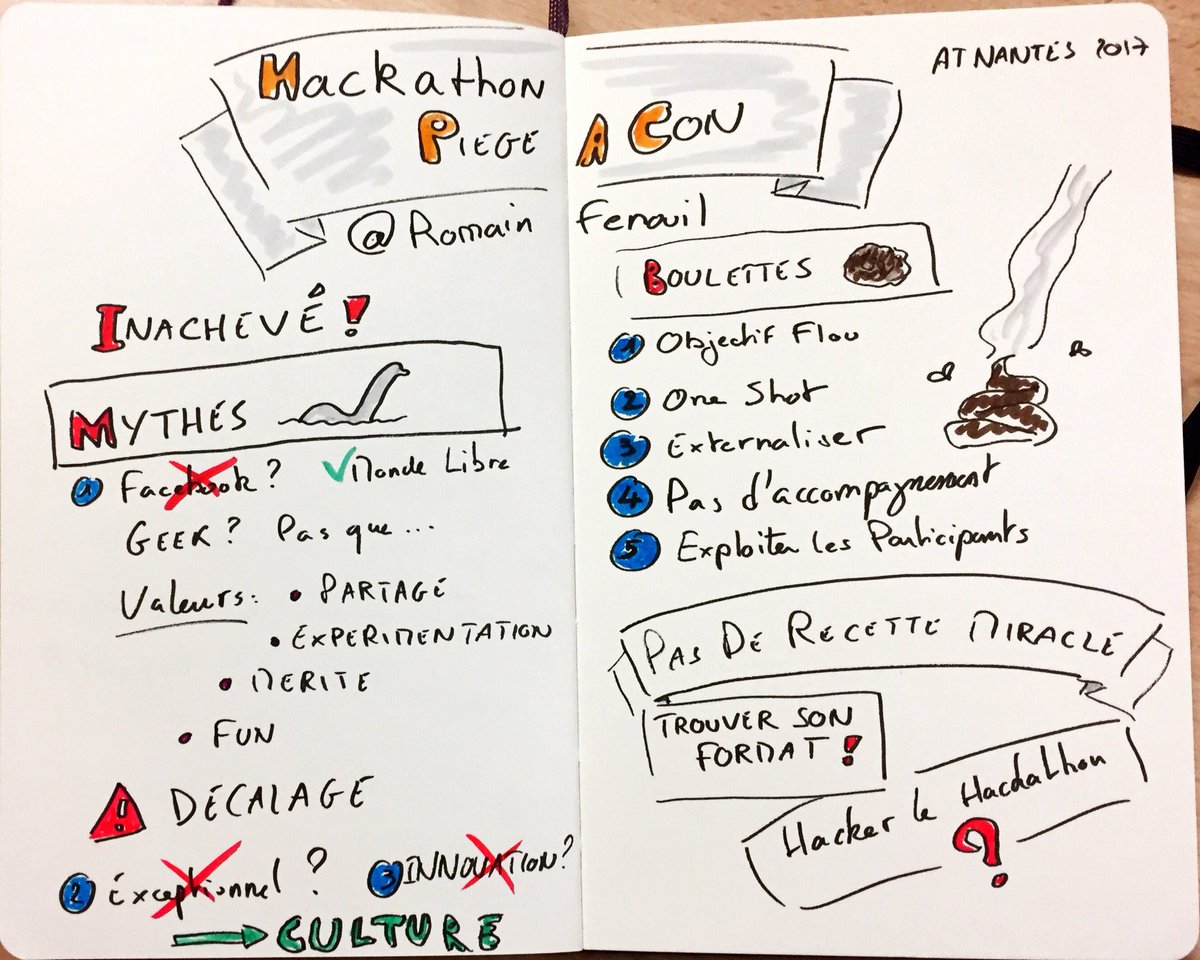 Hackathon
Piege A Con
AT NANTES 2017
@Romain Fenouil
INACHEVÉ !
MYTHES
1 Facebook ? ✓ Monde Libre
GEEK ? Pas que ...
Valeurs : • PARTAGE
• EXPERIMENTATION
• MERITE
• FUN
! DÉCALAGE
2 Exceptionnel ? 3 INNOVATION ?
→ CULTURE
BOULETTES
1 Objectif Flou
2 One Shot
3 Externaliser
4 Pas d'accompagnement
5 Exploiter les Participants
PAS DE RECETTE MIRACLE
TROUVER SON
FORMAT !
Hacker le Hackathon
?